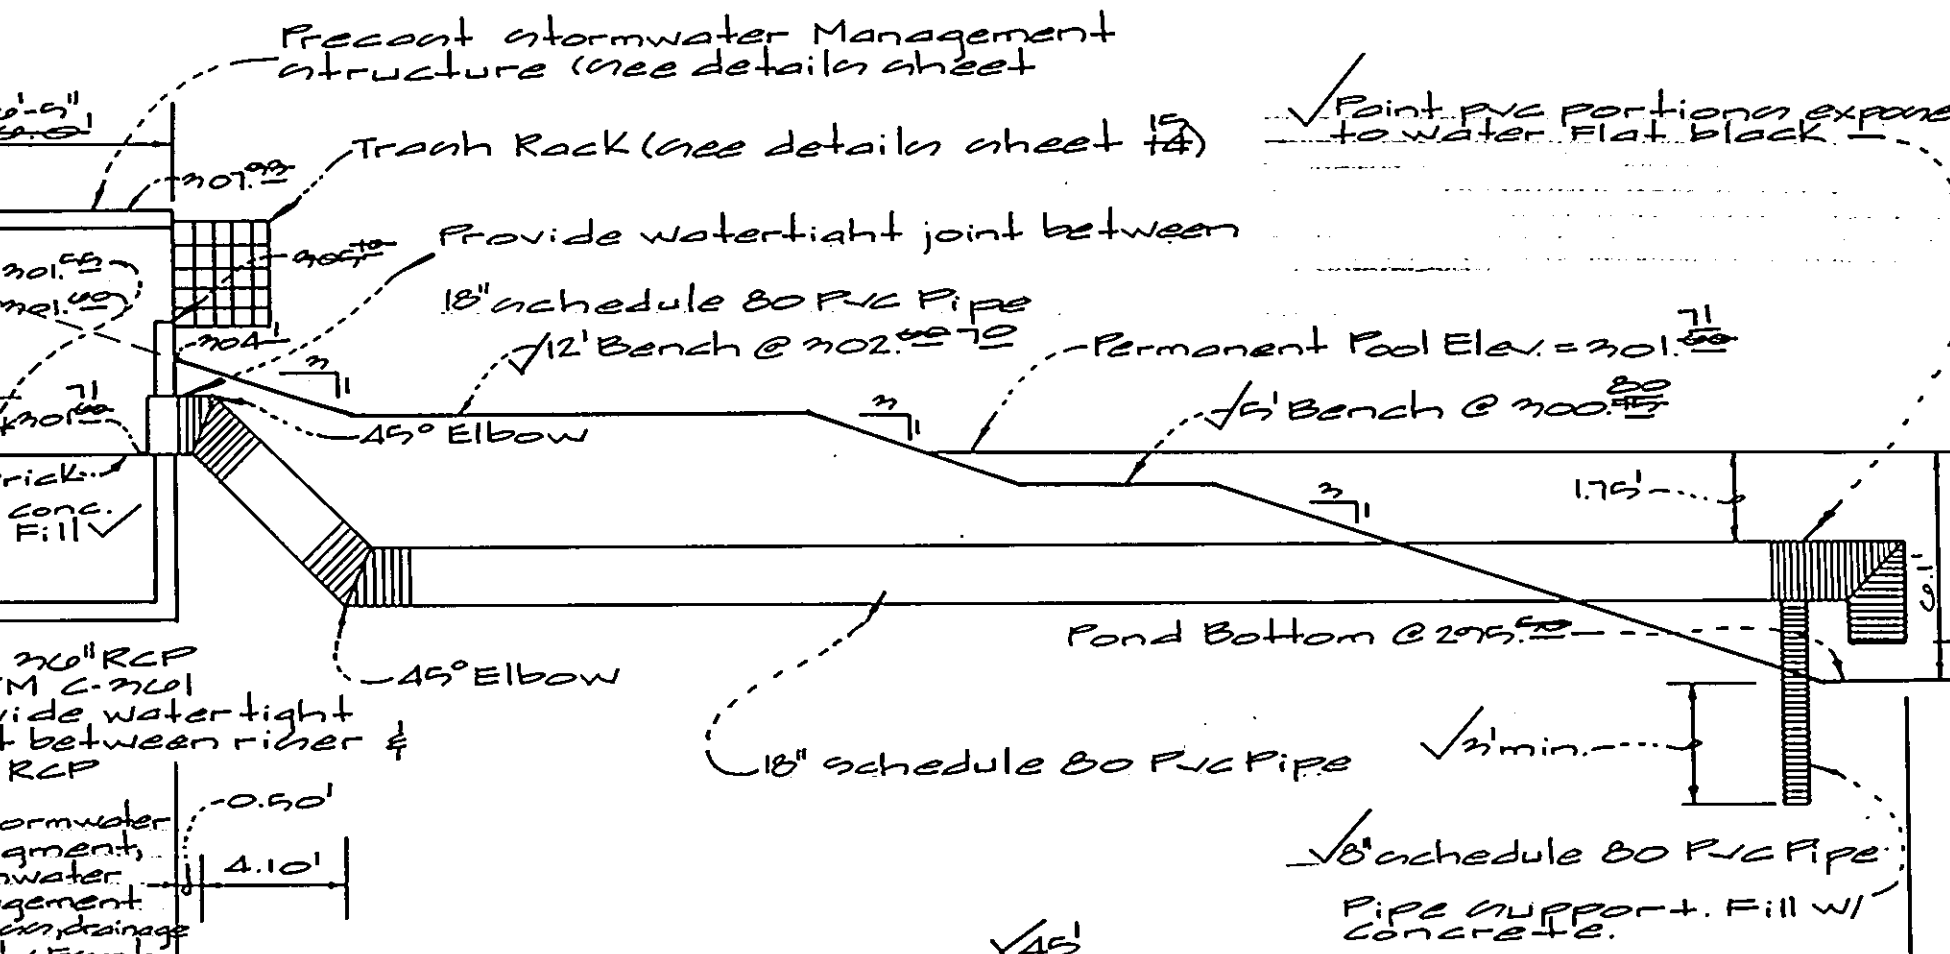 Precast stormwater Management
structure (see details sheet
Trash Rack (see details sheet 14) 15
Paint pvc portions expose
to water Flat black
307.93
Provide watertight joint between
18" schedule 80 PVC Pipe
301.55
304'
12' Bench @ 302.60 70
Permanent Pool Elev. = 301.60 71
5' Bench @ 300.45 80
45° Elbow
rick
conc.
Fill
1.75'
Pond Bottom @ 295.50
6.1'
45° Elbow
36" RCP
TM C-361
vide watertight
t between riser &
RCP
18" schedule 80 PVC Pipe
3' min.
0.50'
4.10'
ormwater
gment,
water
agement
drainage
8" schedule 80 PVC Pipe
Pipe support. Fill w/
concrete.
45'